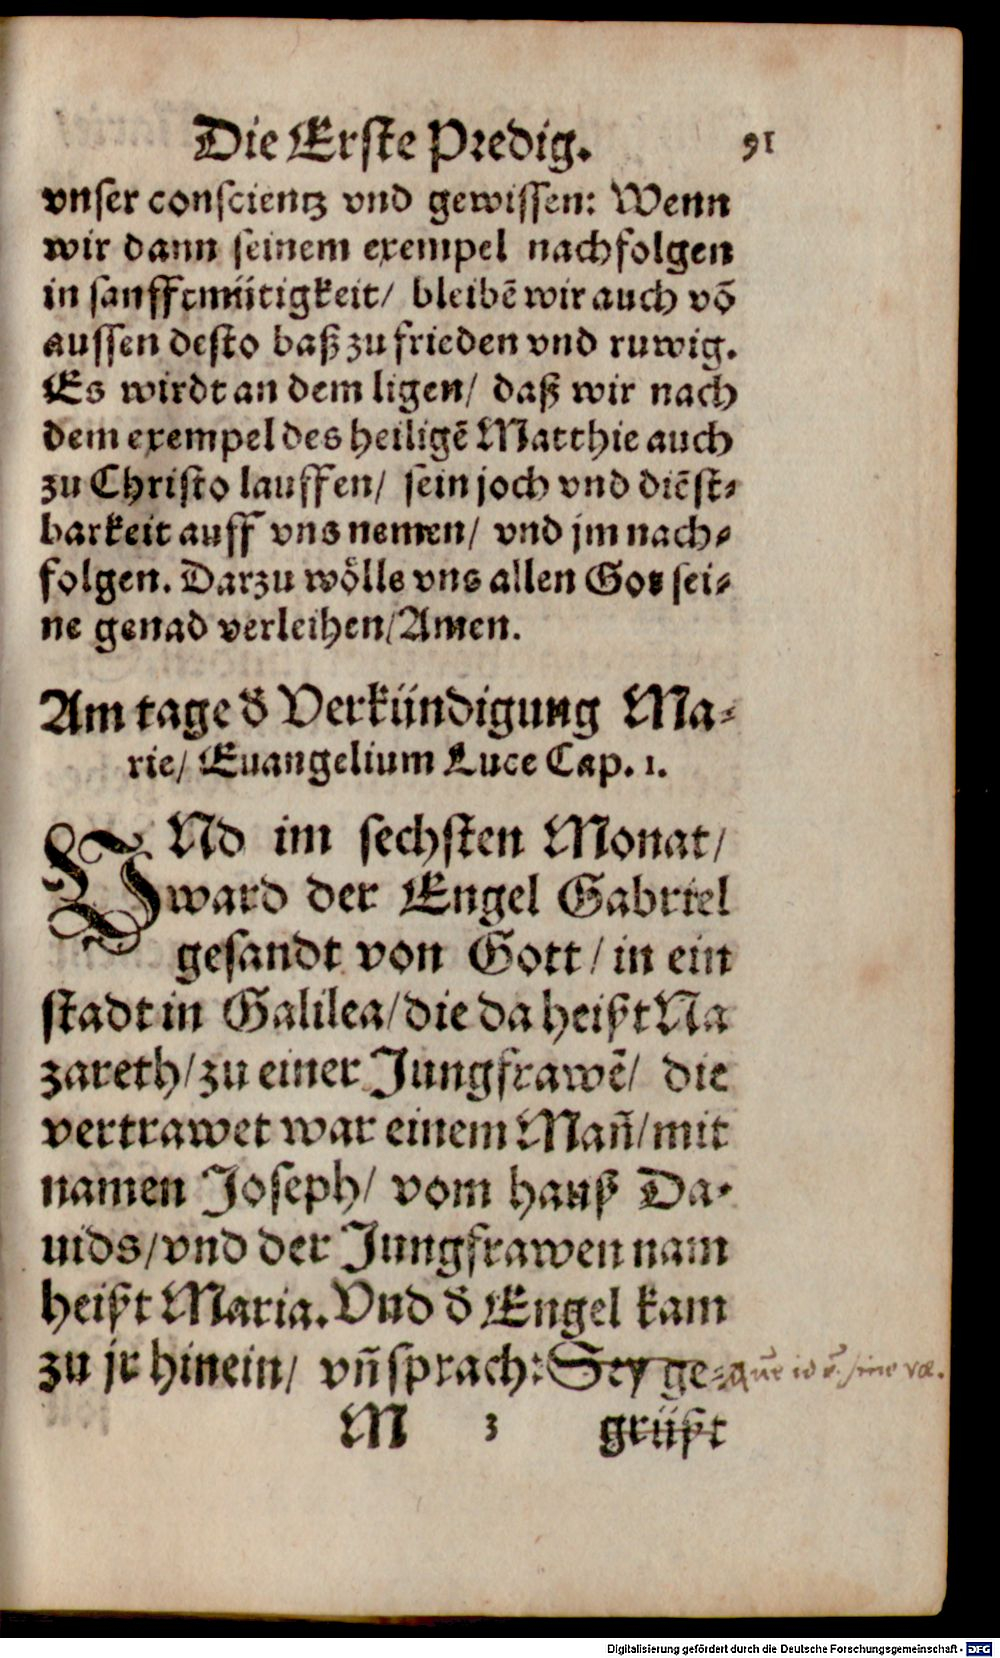 Die Erste Predig. 91
vnser conscientz vnd gewissen: Wenn
wir dann seinem exempel nachfolgen
in sanfftmütigkeit/ bleibē wir auch võ
aussen desto baß zu frieden vnd ruwig.
Es wirdt an dem ligen/ daß wir nach
dem exempel des heiligē Matthie auch
zu Christo lauffen/ sein joch vnd diēst-
barkeit auff vns nemen/ vnd jm nach-
folgen. Darzu wölle vns allen Got sei-
ne genad verleihen/Amen.
Am tage d' Verkündigung Ma-
rie/ Euangelium Luce Cap. 1.
VNd im sechsten Monat/
ward der Engel Gabriel
gesandt von Gott/ in ein
stadt in Galilea/ die da heißt Na
zareth/ zu einer Jungfrawē/ die
vertrawet war einem Mañ/ mit
namen Joseph/ vom hauß Da-
uids/ vnd der Jungfrawen nam
heißt Maria. Vnd d' Engel kam
zu jr hinein/ vñ sprach: Sey ge-
M 3 grüßt
Digitalisierung gefördert durch die Deutsche Forschungsgemeinschaft - DFG